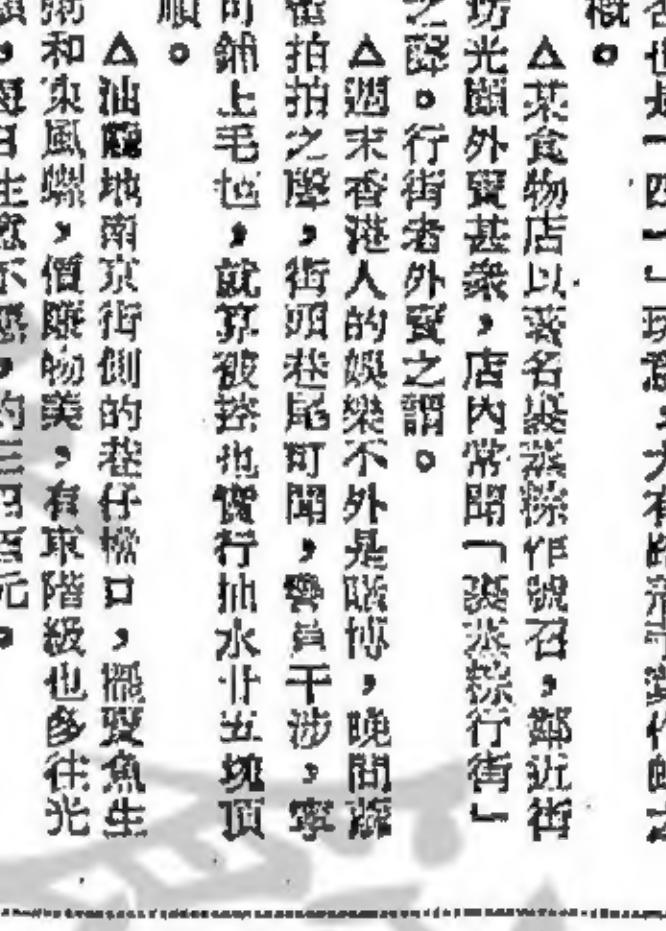 名也是「四一」
概。
△某食物店以著名裹蒸粽作號召，鄰近街
坊光顧外賣甚衆，店內常聞「裹蒸粽行街」
之聲。行街者外賣之謂。
△週末香港人的娛樂不外是賭博，晚間蔴
雀拍拍之聲，街頭巷尾可聞，警員干涉，寧
可舖上毛毡，就算被控也實行抽水廿五塊頂
順。
△油蔴地南京街側的巷仔檔口，擺賣魚生
粥和東風螺，價賺物美，有車階級也多往光
顧，每日生意不惡，約三四百元。